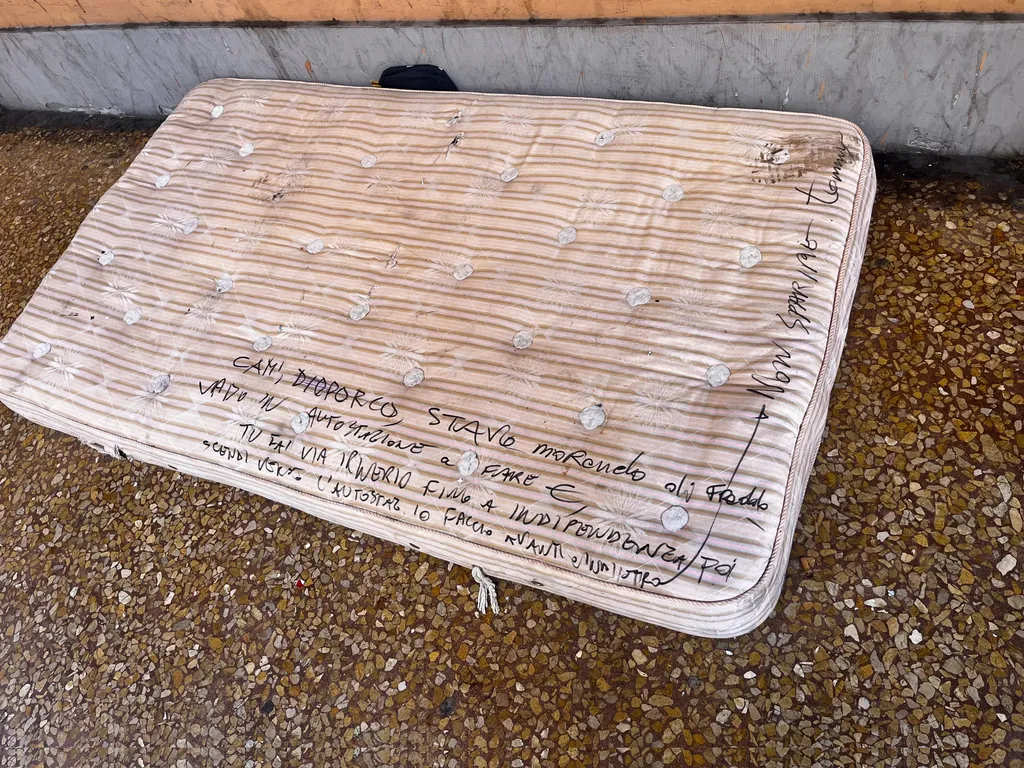 CAMI, DIOPORCO, STAVO MORENdo di FREddo
VADO IN AUTOSTAZIONE a FARE €,
TU FAI VIA IRNERIO FINO A INDIPENDENZA POI
SCENDI VERSO L'AUTOSTAZ. IO FACCIO AVANTI e INdIETRO
NON SPARIRE